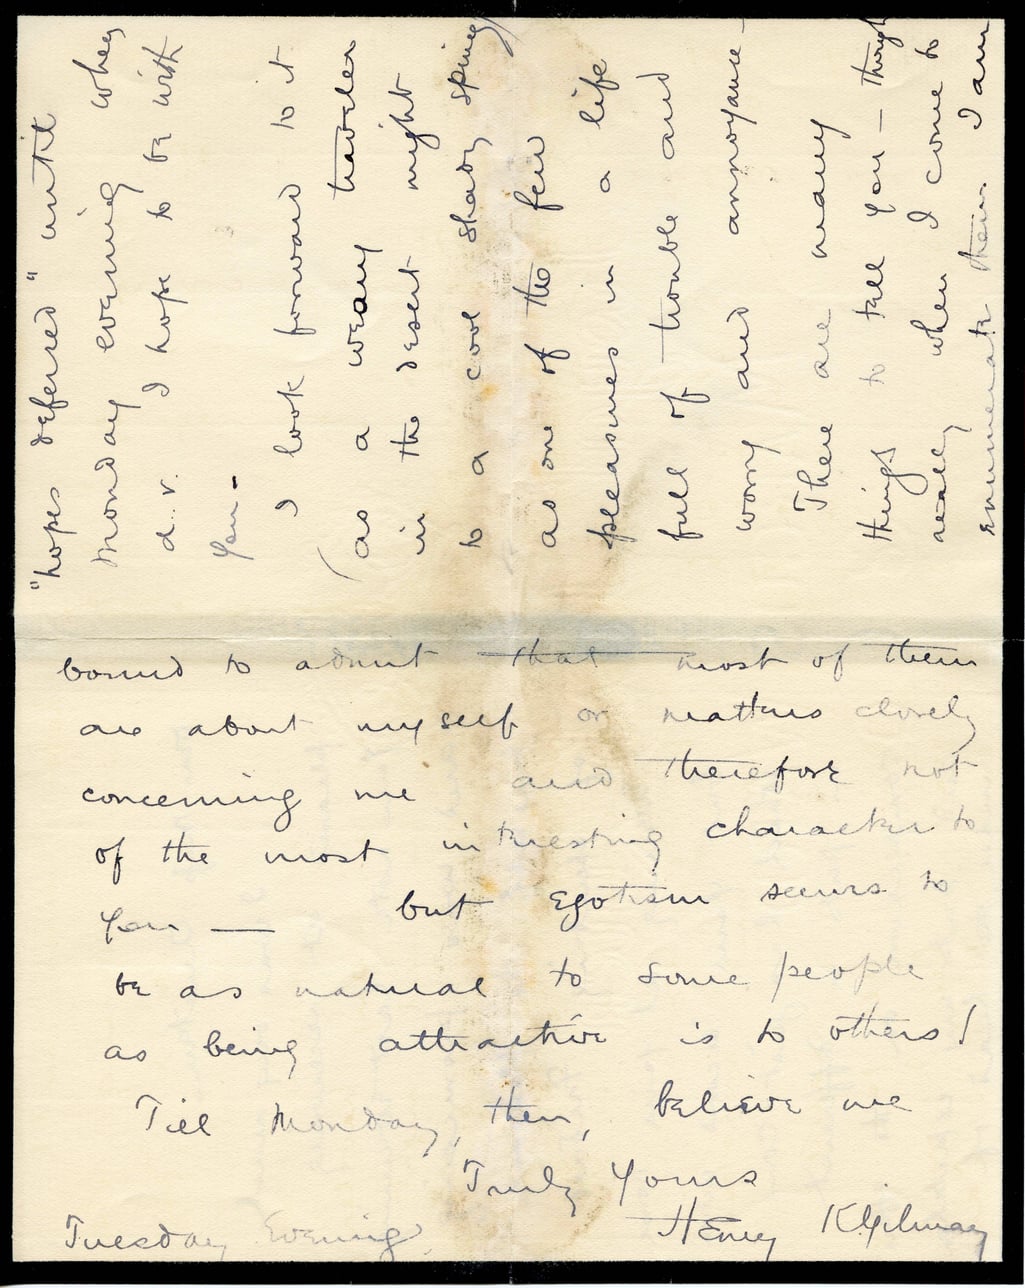 "hopes deferred" until
Monday evening when
d.v. I hope to be with
you -
I look forward to it
(as a weary traveler
in the desert might
to a cool shady spring)
as one of the few
pleasures in a life
full of trouble and
worry and annoyance -
There are many
things to tell you - though
really when I come to
enumerate them I am
bound to admit that most of them
are about myself or matters closely
concerning me and therefore not
of the most interesting character to
you — but Egotism seems to
be as natural to some people
as being attractive is to others!
Till Monday, then, believe me
Truly Yours
Henry
Tuesday Evening.